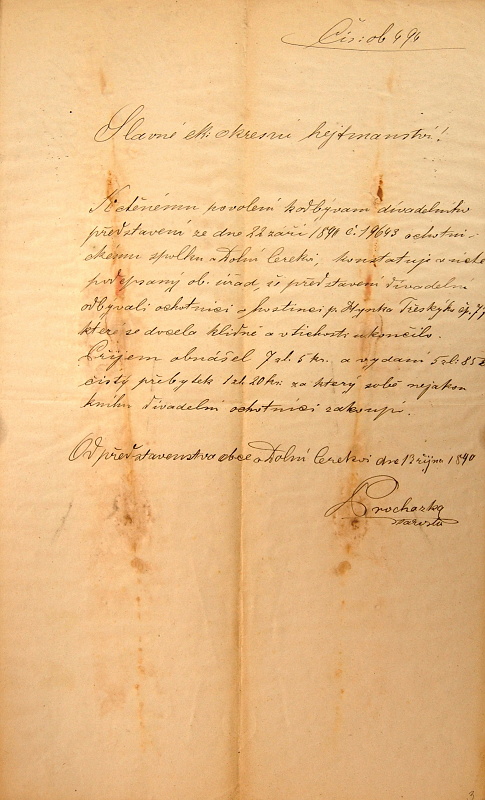 Čís: ob 494
Slavné ck: okresní hejtmanství!
K ctěnému povolení k odbývaní divadelního
představení ze dne 22 září 1890 č. 19643 ochotni-
ckému spolku v Dolní Cerekvi, konstatuje v níže
podepsaný ob. úřad, že představení divadelní
odbývali ochotníci v hostinci p. Hynka čp. 77
které se docela klidně a v tichosti ukončilo.
Příjem obnášel 7 zl. 5 kr. a vydaní 5 zl: 85 k
čistý přebytek 1 zl. 20 kr. za který sobě nejakou
knihu divadelní ochotníci zakoupí.
Od představenstva obce v Dolní Cerekvi dne 13 října 1890
Prochazka
starosta
3